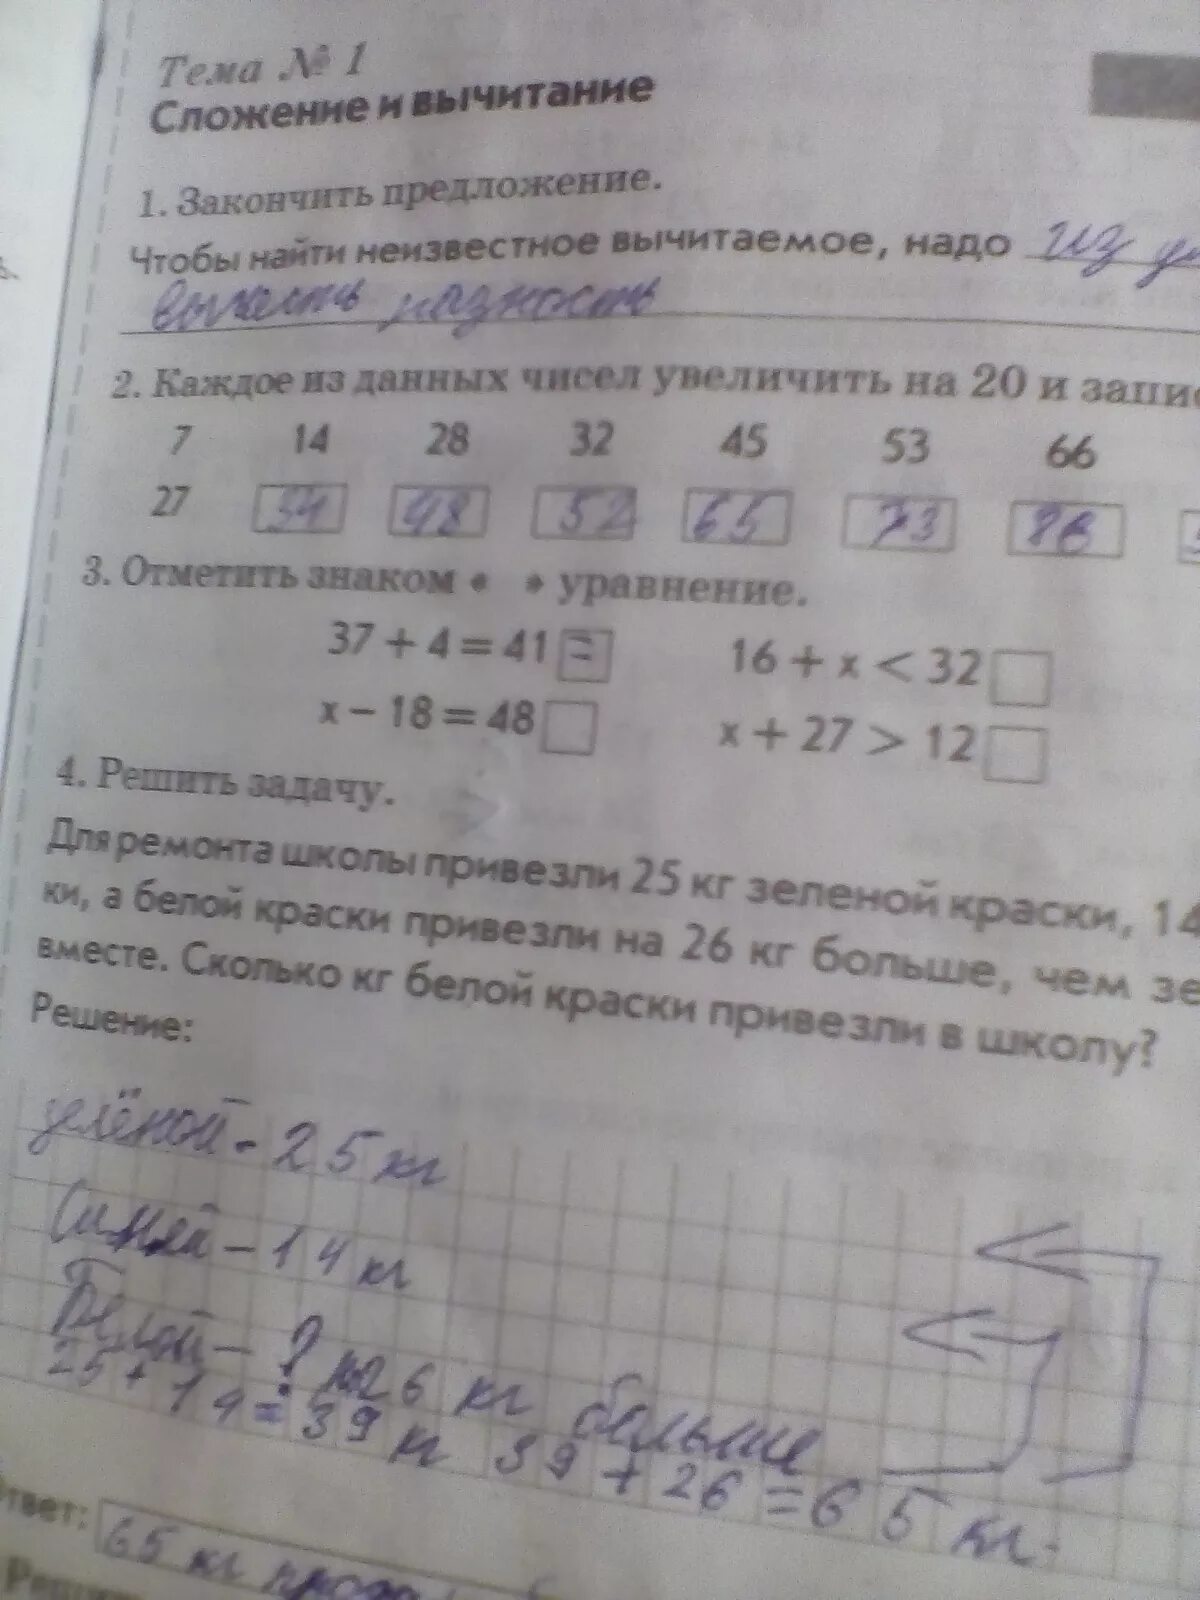 Тема № 1
Сложение и вычитание
1. Закончить предложение.
Чтобы найти неизвестное вычитаемое, надо из
вычесть разность
2. Каждое из данных чисел увеличить на 20 и запис
7 14 28 32 45 53 66
27 34 48 52 65 73 86
3. Отметить знаком « » уравнение.
37 + 4 = 41 = 16 + x < 32
x − 18 = 48 x + 27 > 12
4. Решить задачу.
Для ремонта школы привезли 25 кг зеленой краски, 14
ки, а белой краски привезли на 26 кг больше, чем зе
вместе. Сколько кг белой краски привезли в школу?
Решение:
зелёной - 25 кг
Синей - 14 кг
Белой - ? на 26 кг больше
25 + 14 = 39 кг 39 + 26 = 65 кг.
Ответ: 65 кг
Реши